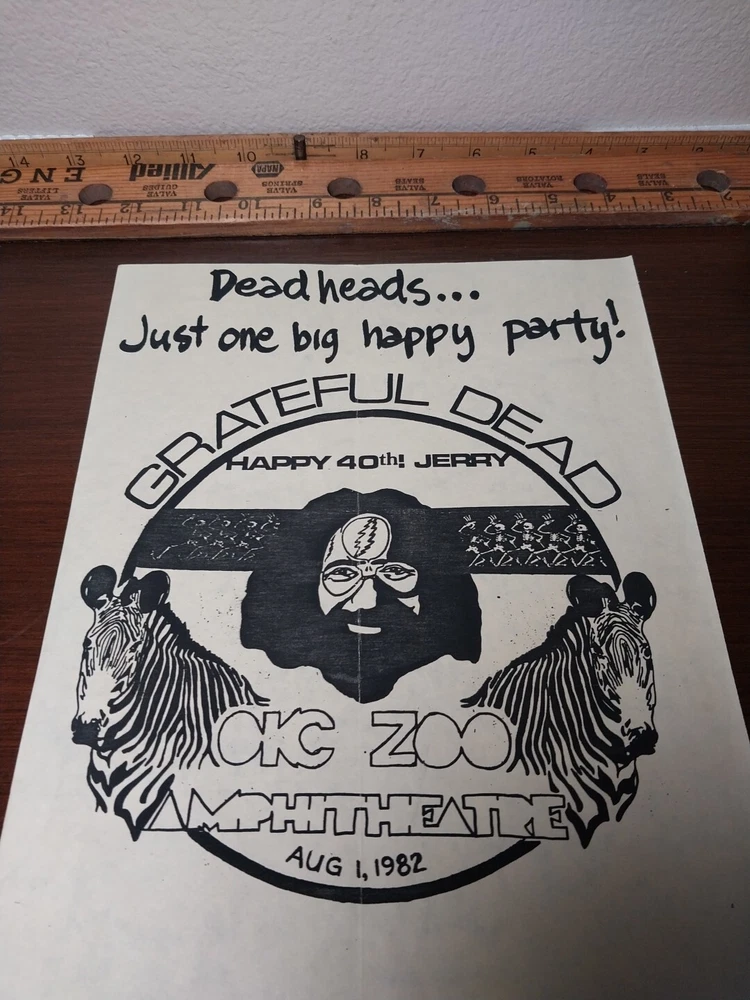 14 13 12 11 10 8 7 6 5 4 3
ENG Allied NAPA
VALVE LIFTERS VALVE GUIDES VALVE SPRINGS VALVE SEATS VALVE ROTATORS VALVE SEALS
14 13 12 11 10 9 8 7 6 5 4 3 2
Deadheads...
Just one big happy party!
GRATEFUL DEAD
HAPPY 40th! JERRY
OKC ZOO
AMPHITHEATRE
AUG 1, 1982